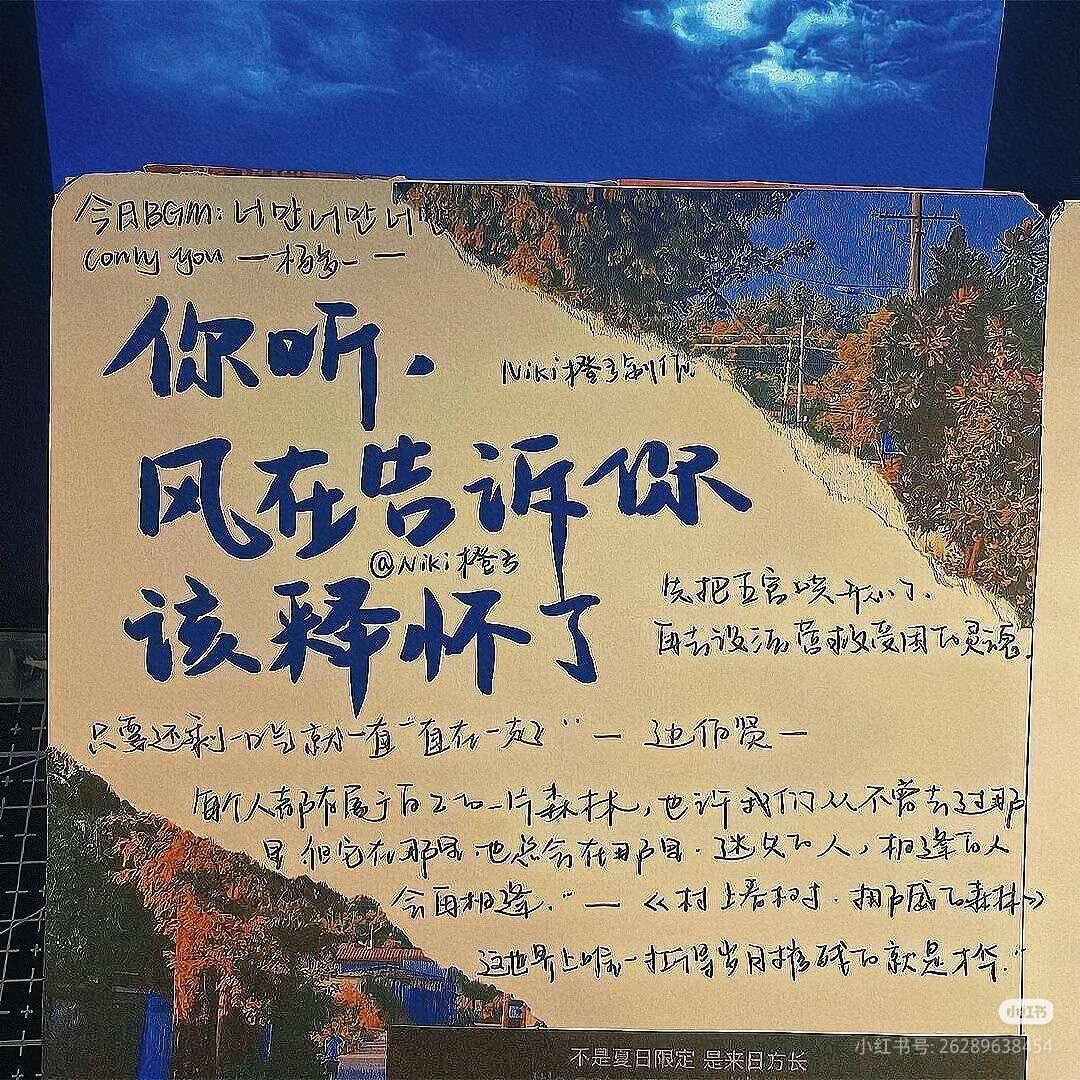 今日BGM: 너만너만너만
(only you — 杨
你听,
Niki橙子制作
风在告诉你
@Niki橙子
该释怀了
先把五官哄开心了.
再去设法营救受困的灵魂.
只要还剩一口气就一直一直在一起" — 边伯贤 —
每个人都有属于自己的一片森林,也许我们从不曾去过那
里 但它在那里.也总会在那里.迷失的人,相逢的人
会再相逢." — 《村上春树. 挪威的森林》
这世界上唯一扛得岁月摧残的就是才华."
不是夏日限定 是来日方长
小红书
小红书号: 26289638454